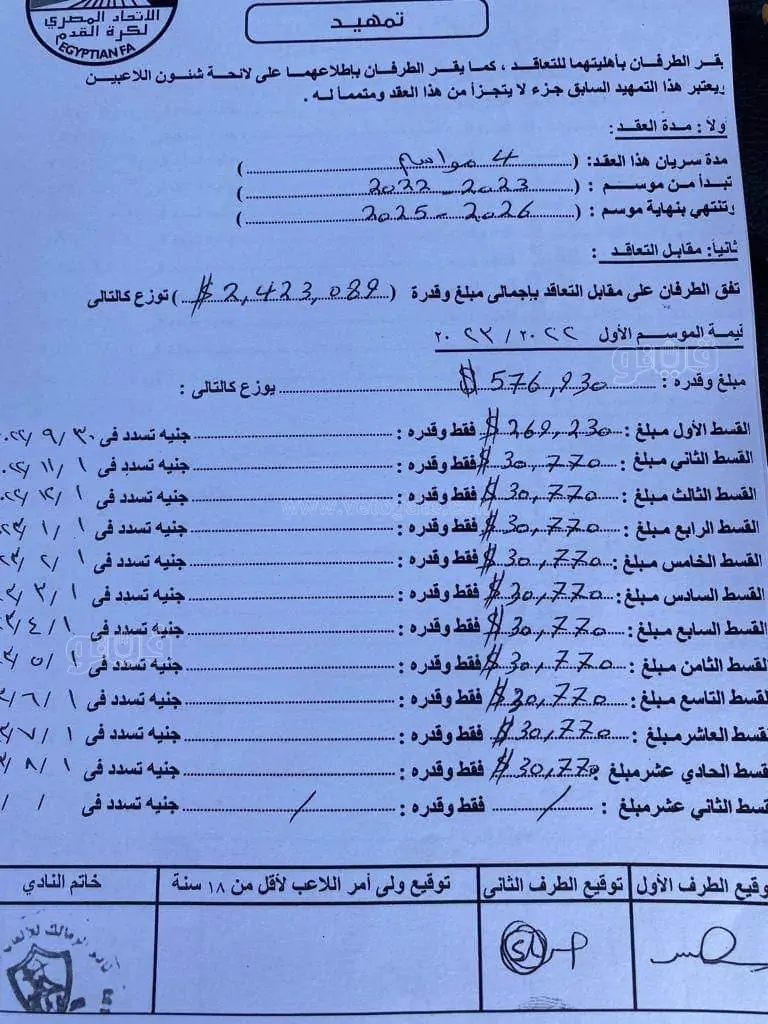 الاتحاد المصري
لكرة القدم
EGYPTIAN FA
تمهيد
يقر الطرفان بأهليتهما للتعاقد ، كما يقر الطرفان بإطلاعهما على لائحة شئون اللاعبين
ويعتبر هذا التمهيد السابق جزء لا يتجزأ من هذا العقد ومتمماً له .
ولاً : مدة العقد :
مدة سريان هذا العقد : ( 4 مواسم )
تبدأ من موسم : ( 2022 - 2023 )
وتنتهي بنهاية موسم : ( 2025 - 2026 )
ثانياً : مقابل التعاقد :
تفق الطرفان على مقابل التعاقد بإجمالى مبلغ وقدرة ( $ 2,423,089 ) توزع كالتالى
قيمة الموسم الأول ٢٠٢٢ / ٢٠٢٣
مبلغ وقدره : $ 576,930 يوزع كالتالى :
القسط الأول مبلغ : $ 269,230 فقط وقدره : جنيه تسدد فى ٣٠ / ٩ / ٢٠٢٢
القسط الثاني مبلغ : $ 30,770 فقط وقدره : جنيه تسدد فى ١ / ١١ / ٢٠٢٢
القسط الثالث مبلغ : $ 30,770 فقط وقدره : جنيه تسدد فى ١ / ١٢ / ٢٠٢٢
القسط الرابع مبلغ : $ 30,770 فقط وقدره : جنيه تسدد فى ١ / ١ / ٢٠٢٣
القسط الخامس مبلغ : $ 30,770 فقط وقدره : جنيه تسدد فى ١ / ٢ / ٢٣
القسط السادس مبلغ : $ 30,770 فقط وقدره : جنيه تسدد فى ١ / ٣ / ٢٣
القسط السابع مبلغ : $ 30,770 فقط وقدره : جنيه تسدد فى ١ / ٤ / ٢٣
القسط الثامن مبلغ : $ 30,770 فقط وقدره : جنيه تسدد فى ١ / ٥ / ٢٣
القسط التاسع مبلغ : $ 30,770 فقط وقدره : جنيه تسدد فى ١ / ٦ /
القسط العاشر مبلغ : $ 30,770 فقط وقدره : جنيه تسدد فى ١ / ٧ /
قسط الحادي عشر مبلغ : $ 30,770 فقط وقدره : جنيه تسدد فى ١ / ٨ /
قسط الثاني عشر مبلغ : / فقط وقدره : / جنيه تسدد فى / /
وقيع الطرف الأول توقيع الطرف الثانى توقيع ولى أمر اللاعب لأقل من ١٨ سنة خاتم النادي
فيتو
www.vetogate.com